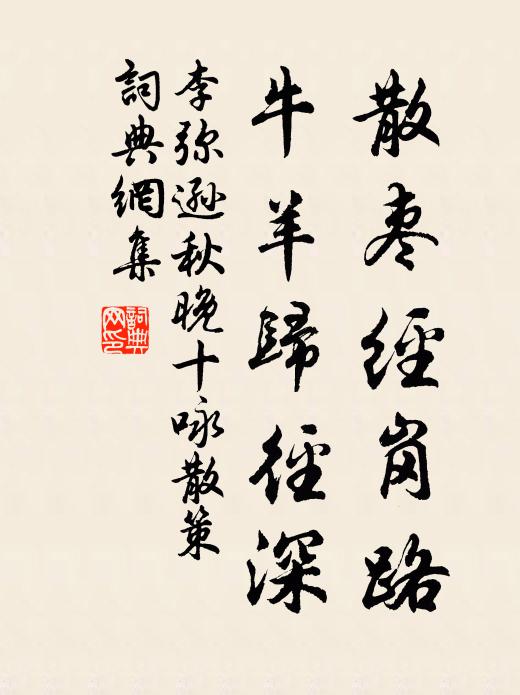 散枣經岗路
牛羊歸徑深
李弥遜秋晚十咏散策
詞典網集
詞典网印